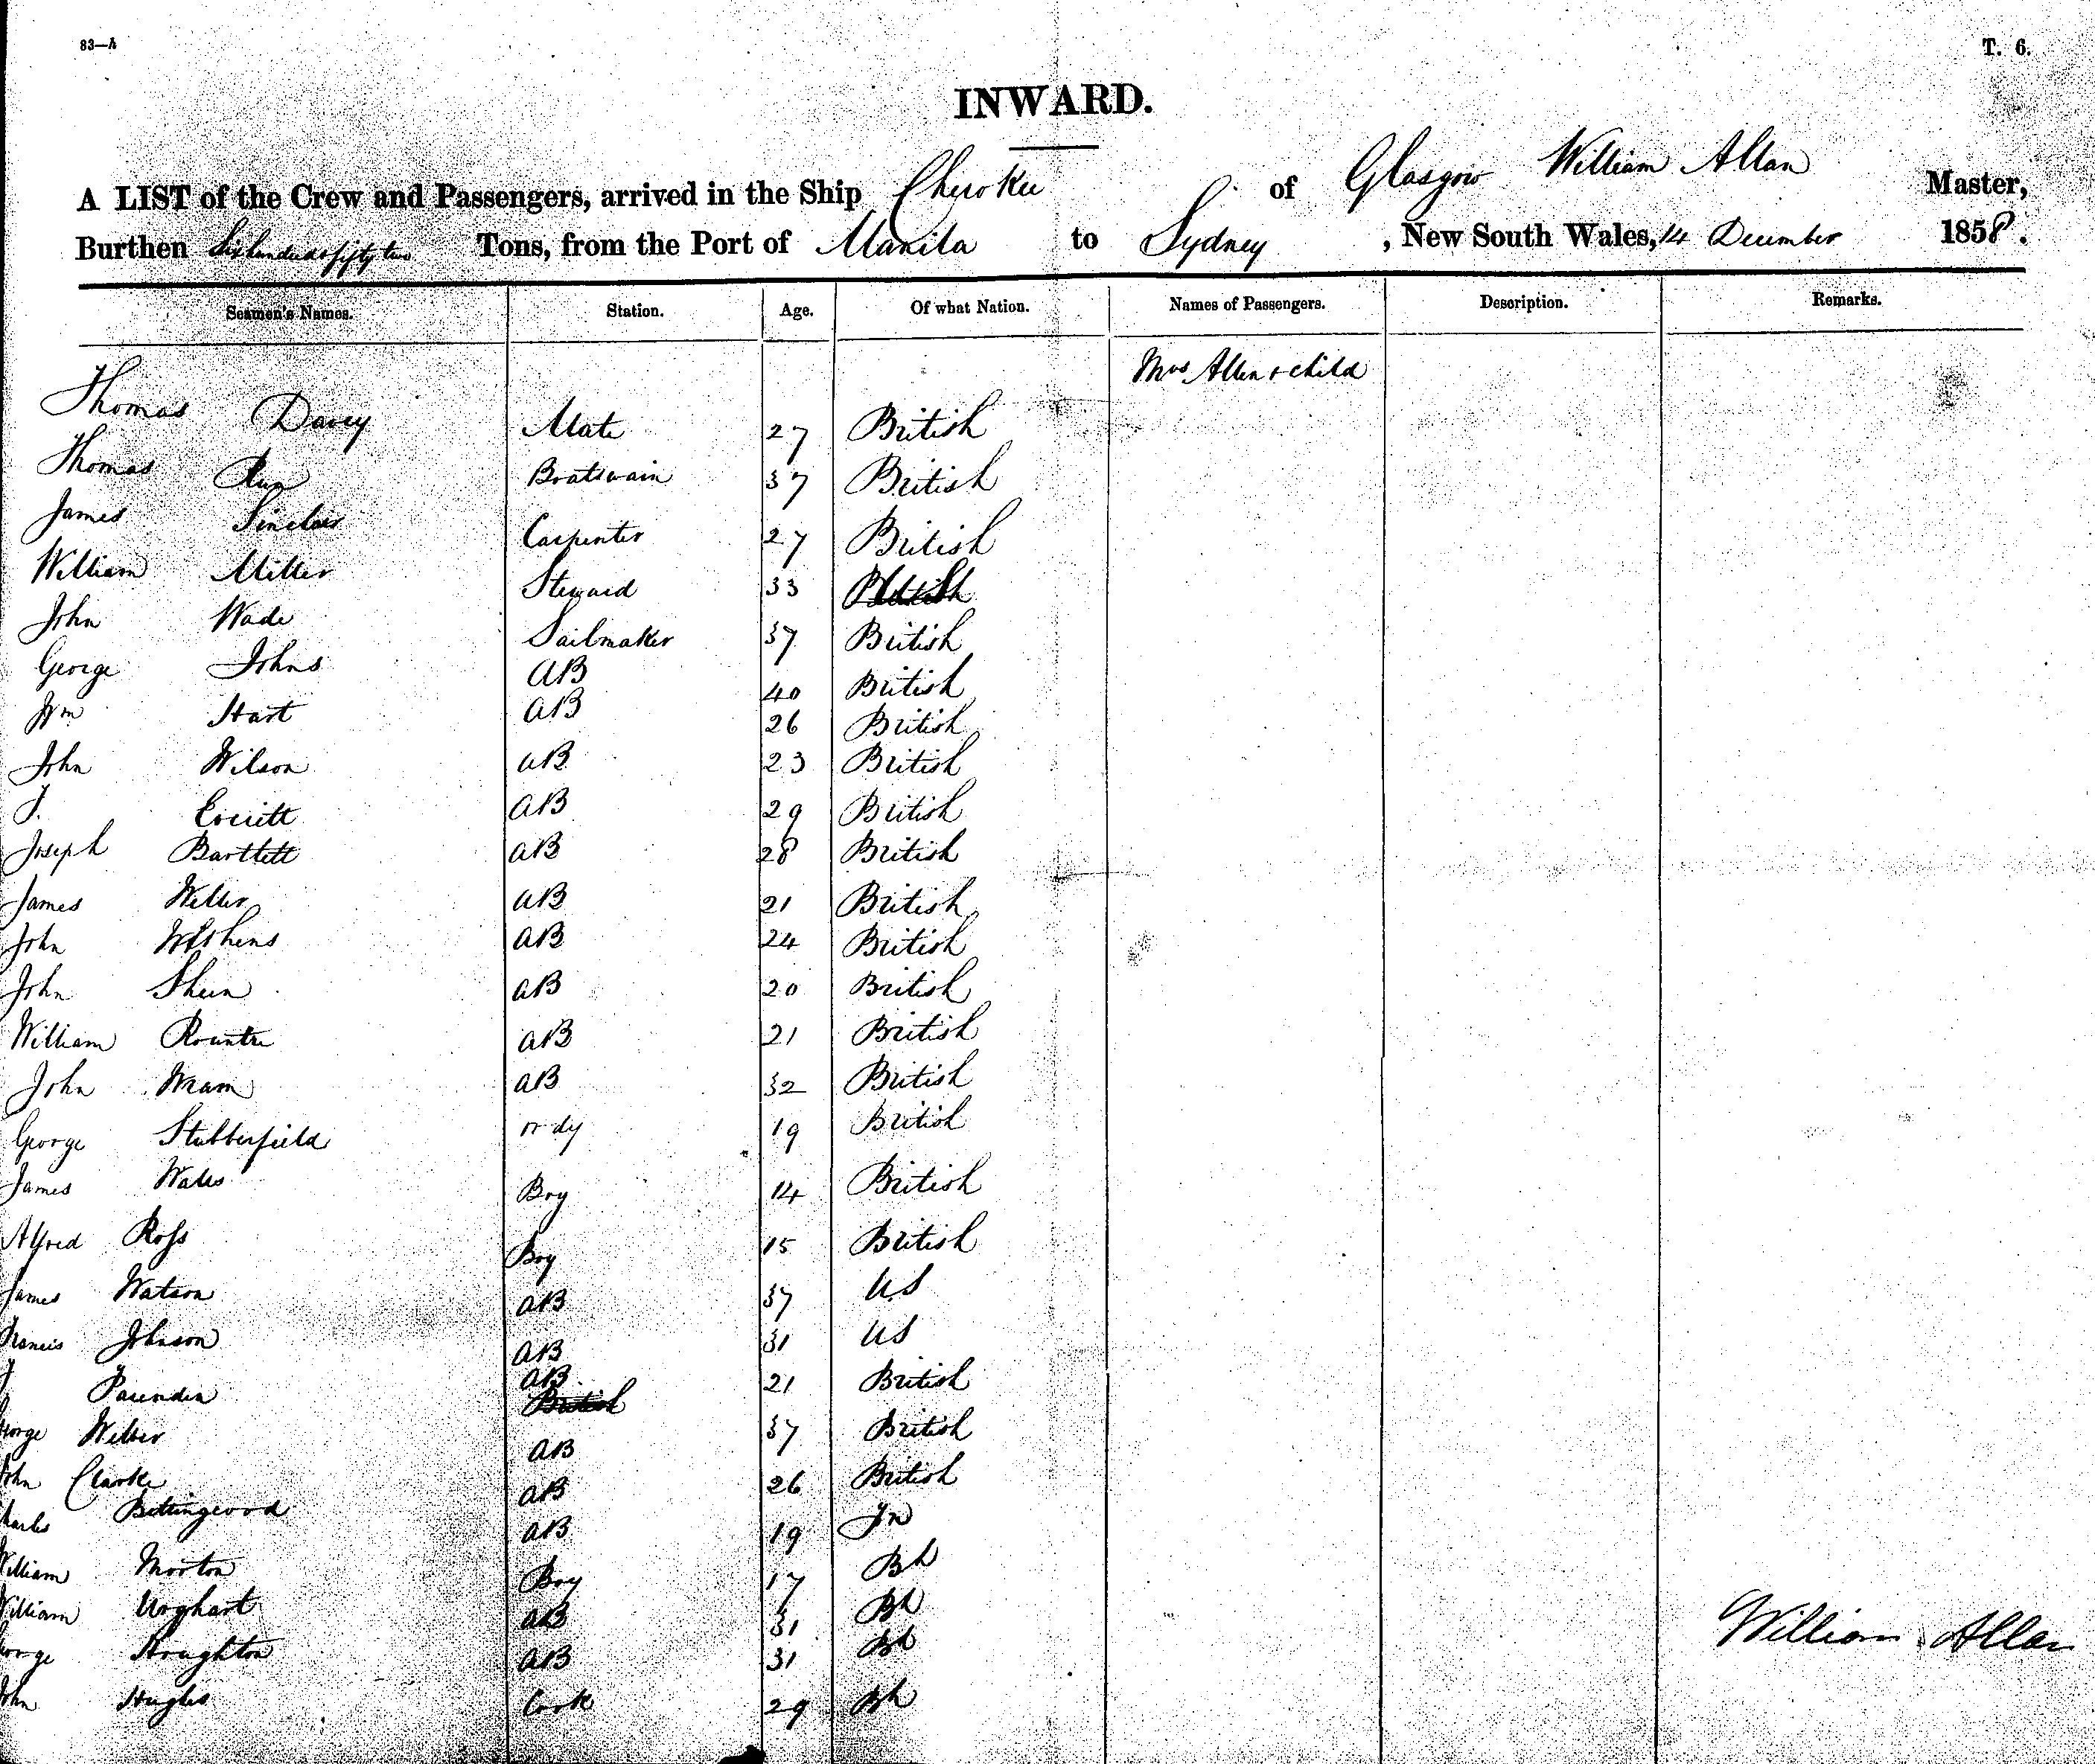 83—A
T. 6.
INWARD.
A LIST of the Crew and Passengers, arrived in the Ship Cherokee of Glasgow William Allan Master,
Burthen Six hundred & fifty two Tons, from the Port of Manila to Sydney, New South Wales, 14 December 1858.
Seamen's Names. Station. Age. Of what Nation. Names of Passengers. Description. Remarks.
Mrs Allen & child
Thomas Davey Mate 27 British
Thomas Boatswain 37 British
James Sinclair Carpenter 27 British
William Miller Steward 33 British
John Wade Sailmaker 37 British
George Johns AB 40 British
Wm Hart AB 26 British
John Wilson AB 23 British
J. Everitt AB 29 British
Joseph Bartlett AB 28 British
James Weller AB 21 British
John AB 24 British
John Sheen AB 20 British
William Rountre AB 21 British
John AB 32 British
George Stubberfield ordy 19 British
James Wales Boy 14 British
Alfred Ross Boy 15 British
James Watson AB 37 US
Francis Johnson AB 31 US
AB 21 British
British
George AB 37 British
John Clarke AB 26 British
Charles Bettingwood AB 19
William Morton Boy 17 Bh
William Urghart AB 31 Bh
George Houghton AB 31 Bh
John Hughes Cook 29 Bh
William Allan